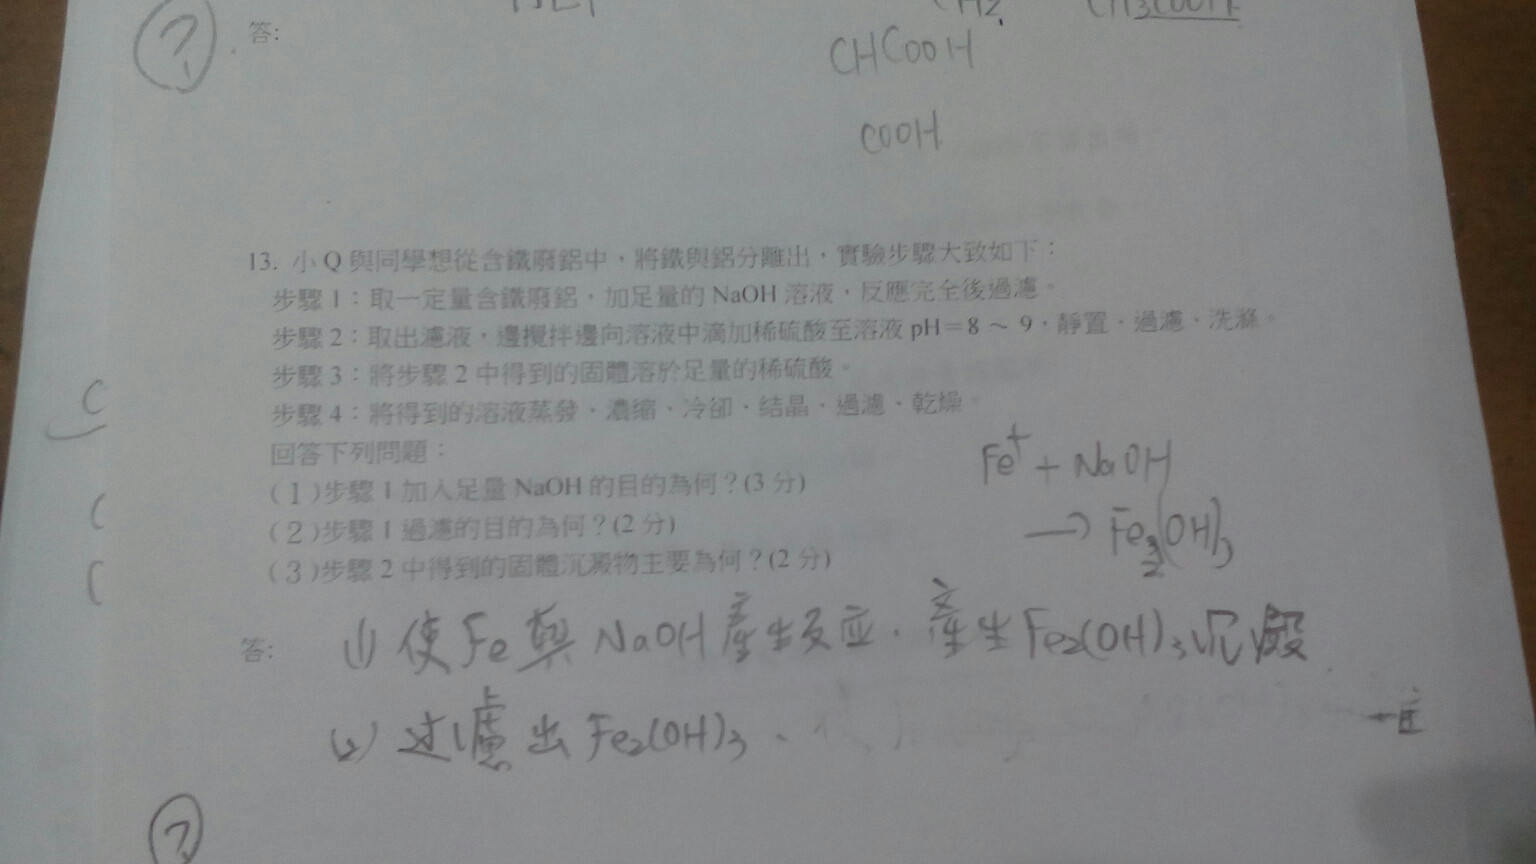 答:
CHCOOH
COOH
13. 小Q與同學想從含鐵廢鋁中，將鐵與鋁分離出，實驗步驟大致如下：
步驟1：取一定量含鐵廢鋁，加足量的NaOH溶液，反應完全後過濾。
步驟2：取出濾液，邊攪拌邊向溶液中滴加稀硫酸至溶液pH=8～9，靜置、過濾、洗滌。
步驟3：將步驟2中得到的固體溶於足量的稀硫酸。
步驟4：將得到的溶液蒸發、濃缩、冷卻、結晶、過濾、乾燥。
回答下列問題：
(1)步驟1加入足量NaOH的目的為何？(3分)
(2)步驟1過濾的目的為何？(2分)
(3)步驟2中得到的固體沉澱物主要為何？(2分)
Fe⁺ + NaOH
→ Fe₂(OH)₃
答: (1) 使Fe與NaOH產生反应，產生Fe₂(OH)₃沉澱
(2) 过濾出Fe₂(OH)₃、